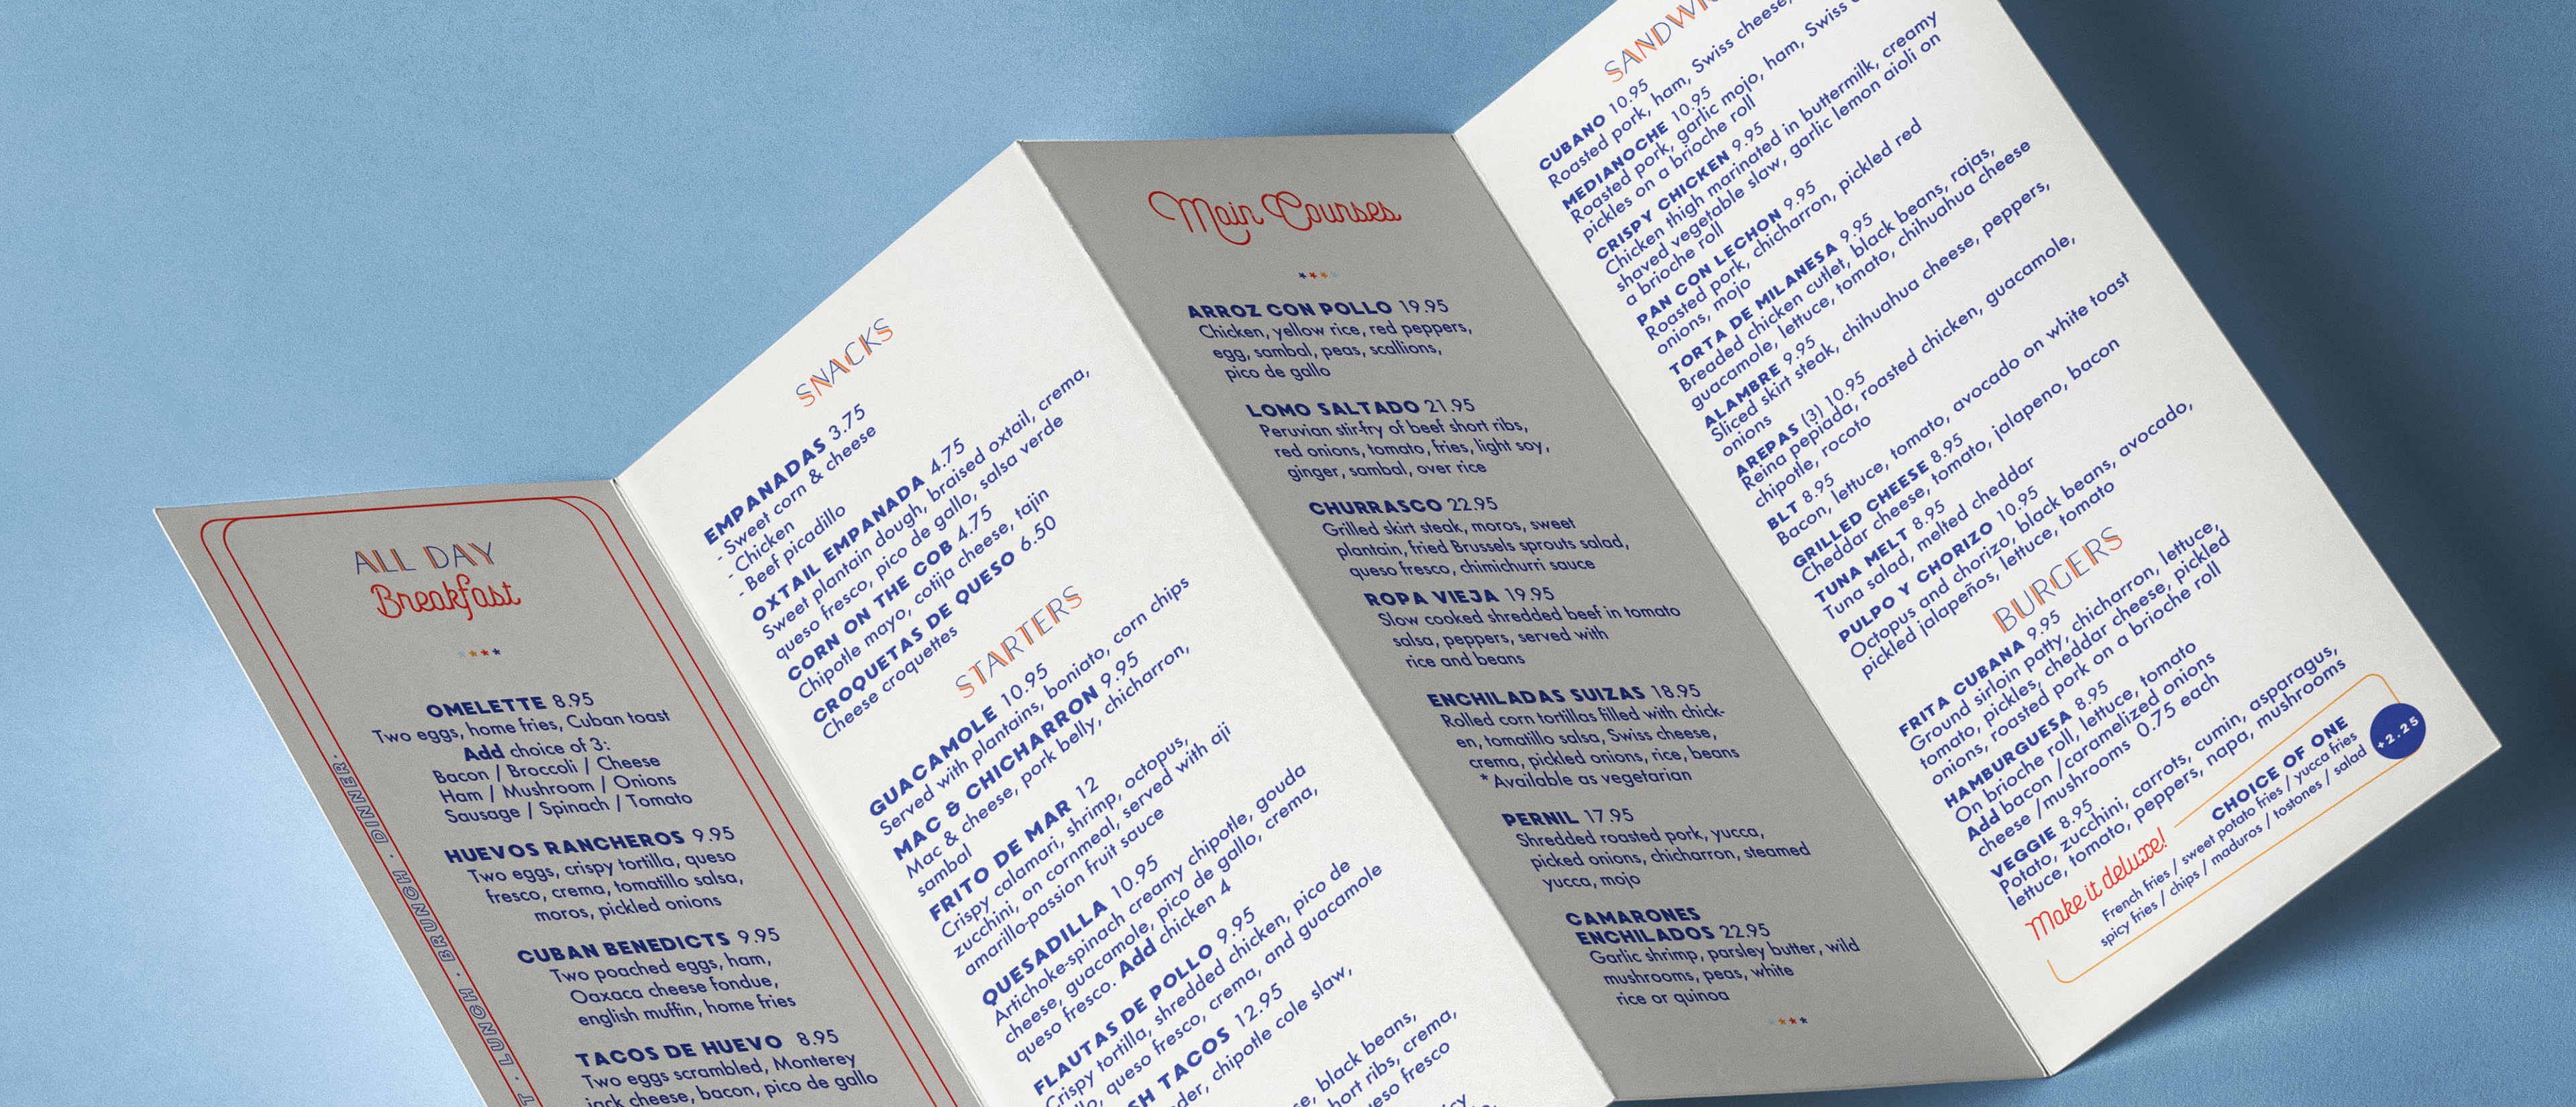 ALL DAY
Breakfast
OMELETTE 8.95
Two eggs, home fries, Cuban toast
Add choice of 3:
Bacon / Broccoli / Cheese
Ham / Mushroom / Onions
Sausage / Spinach / Tomato
HUEVOS RANCHEROS 9.95
Two eggs, crispy tortilla, queso
fresco, crema, tomatillo salsa,
moros, pickled onions
CUBAN BENEDICTS 9.95
Two poached eggs, ham,
Oaxaca cheese fondue,
english muffin, home fries
TACOS DE HUEVO 8.95
Two eggs scrambled, Monterey
jack cheese, bacon, pico de gallo
T · LUNCH · BRUNCH · DINNER ·
SNACKS
EMPANADAS 3.75
- Sweet corn & cheese
- Chicken
- Beef picadillo
OXTAIL EMPANADA 4.75
Sweet plantain dough, braised oxtail, crema,
queso fresco, pico de gallo, salsa verde
CORN ON THE COB 4.75
Chipotle mayo, cotija cheese, tajin
CROQUETAS DE QUESO 6.50
Cheese croquettes
STARTERS
GUACAMOLE 10.95
Served with plantains, boniato, corn chips
MAC & CHICHARRON 9.95
Mac & cheese, pork belly, chicharron,
sambal
FRITO DE MAR 12
Crispy calamari, shrimp, octopus,
zucchini, on cornmeal, served with aji
amarillo-passion fruit sauce
QUESADILLA 10.95
Artichoke-spinach creamy chipotle, gouda
cheese, guacamole, pico de gallo, crema,
queso fresco. Add chicken 4
FLAUTAS DE POLLO 9.95
Crispy tortilla, shredded chicken, pico de
llo, queso fresco, crema, and guacamole
SH TACOS 12.95
der, chipotle cole slaw,
black beans,
ort ribs, crema,
eso fresco
Main Courses
ARROZ CON POLLO 19.95
Chicken, yellow rice, red peppers,
egg, sambal, peas, scallions,
pico de gallo
LOMO SALTADO 21.95
Peruvian stir-fry of beef short ribs,
red onions, tomato, fries, light soy,
ginger, sambal, over rice
CHURRASCO 22.95
Grilled skirt steak, moros, sweet
plantain, fried Brussels sprouts salad,
queso fresco, chimichurri sauce
ROPA VIEJA 19.95
Slow cooked shredded beef in tomato
salsa, peppers, served with
rice and beans
ENCHILADAS SUIZAS 18.95
Rolled corn tortillas filled with chick-
en, tomatillo salsa, Swiss cheese,
crema, pickled onions, rice, beans
* Available as vegetarian
PERNIL 17.95
Shredded roasted pork, yucca,
picked onions, chicharron, steamed
yucca, mojo
CAMARONES
ENCHILADOS 22.95
Garlic shrimp, parsley butter, wild
mushrooms, peas, white
rice or quinoa
SANDWI
CUBANO 10.95
Roasted pork, ham, Swiss cheese,
MEDIANOCHE 10.95
Roasted pork, garlic mojo, ham, Swiss
pickles on a brioche roll
CRISPY CHICKEN 9.95
Chicken thigh marinated in buttermilk, creamy
shaved vegetable slaw, garlic lemon aioli on
a brioche roll
PAN CON LECHON 9.95
Roasted pork, chicharron, pickled red
onions, mojo
TORTA DE MILANESA 9.95
Breaded chicken cutlet, black beans, rajas,
guacamole, lettuce, tomato, chihuahua cheese
ALAMBRE 9.95
Sliced skirt steak, chihuahua cheese, peppers,
onions
AREPAS (3) 10.95
Reina pepiada, roasted chicken, guacamole,
chipotle, rocoto
BLT 8.95
Bacon, lettuce, tomato, avocado on white toast
GRILLED CHEESE 8.95
Cheddar cheese, tomato, jalapeno, bacon
TUNA MELT 8.95
Tuna salad, melted cheddar
PULPO Y CHORIZO 10.95
Octopus and chorizo, black beans, avocado,
pickled jalapeños, lettuce, tomato
BURGERS
FRITA CUBANA 9.95
Ground sirloin patty, chicharron, lettuce,
tomato, pickles, cheddar cheese, pickled
onions, roasted pork on a brioche roll
HAMBURGUESA 8.95
On brioche roll, lettuce, tomato
Add bacon /caramelized onions
cheese /mushrooms 0.75 each
VEGGIE 8.95
Potato, zucchini, carrots, cumin, asparagus,
lettuce, tomato, peppers, napa, mushrooms
Make it deluxe!
CHOICE OF ONE
+2.25
French fries / sweet potato fries / yucca fries
spicy fries / chips / maduros / tostones / salad